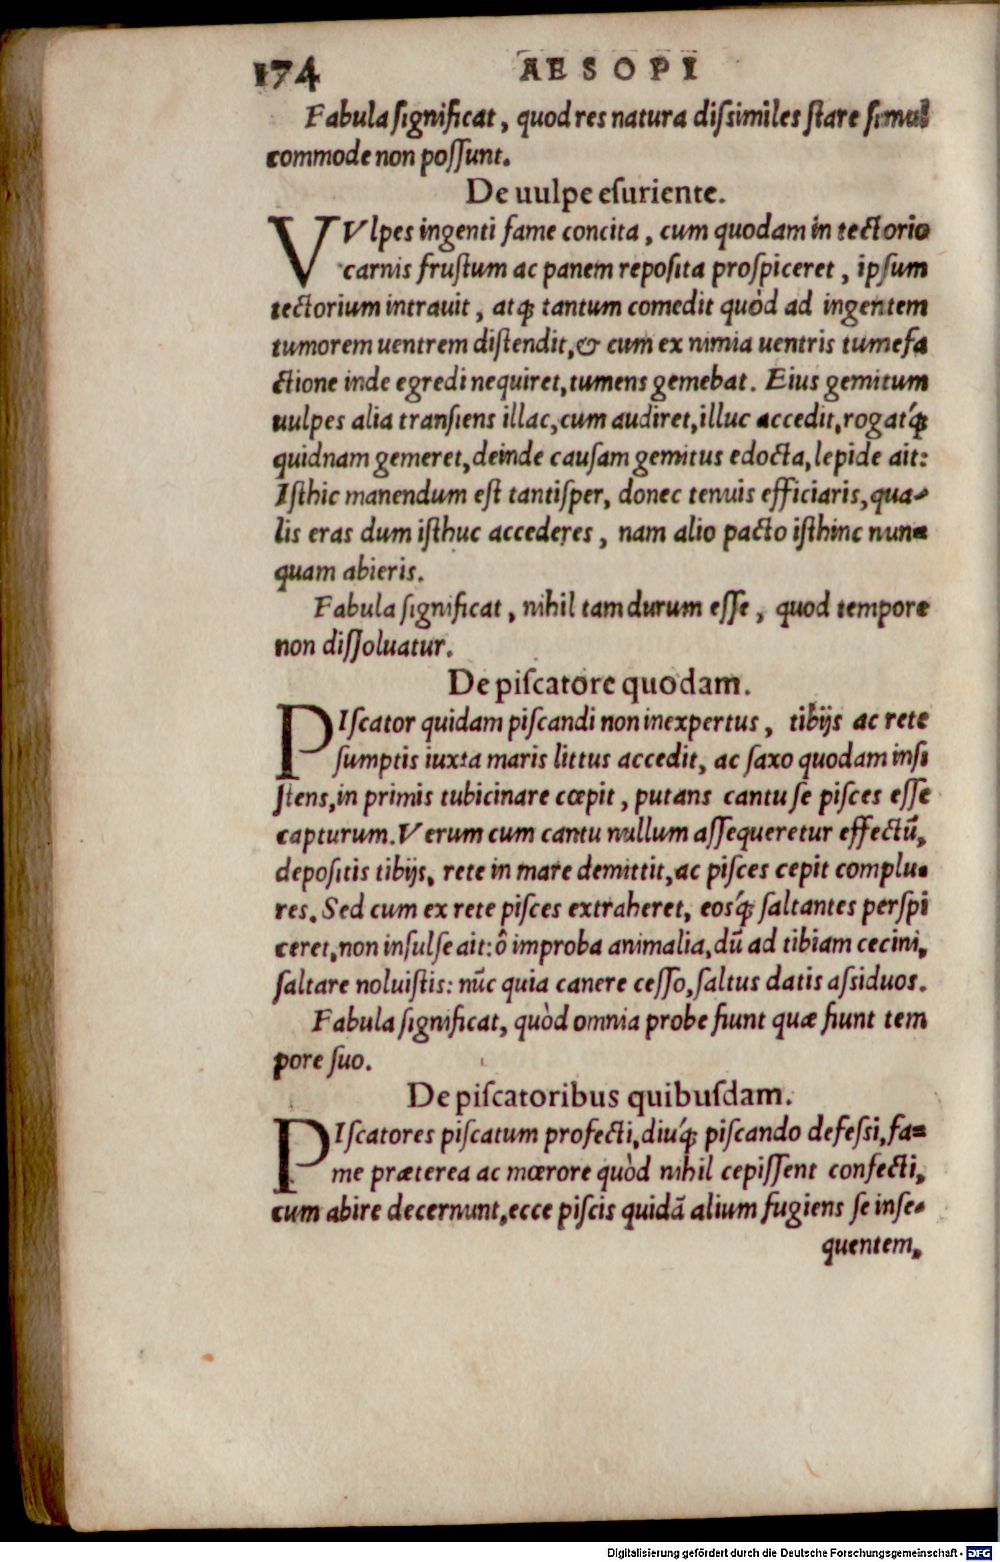 174 AESOPI
Fabula ſignificat, quod res natura diſsimiles ſtare ſimul
commode non poſſunt.
De uulpe eſuriente.
VVlpes ingenti fame concita, cum quodam in tectorio
carnis fruſtum ac panem repoſita proſpiceret, ipſum
tectorium intrauit, atq́; tantum comedit quòd ad ingentem
tumorem uentrem diſtendit, & cum ex nimia uentris tumefa
ctione inde egredi nequiret, tumens gemebat. Eius gemitum
uulpes alia tranſiens illac, cum audiret, illuc accedit, rogat́q;
quidnam gemeret, deinde cauſam gemitus edocta, lepide ait:
Iſthic manendum eſt tantiſper, donec tenuis efficiaris, qua-
lis eras dum iſthuc accederes, nam alio pacto iſthinc nun-
quam abieris.
Fabula ſignificat, nihil tam durum eſſe, quod tempore
non diſſoluatur.
De piſcatore quodam.
PIſcator quidam piſcandi non inexpertus, tibijs ac rete
ſumptis iuxta maris littus accedit, ac ſaxo quodam inſi
ſtens, in primis tubicinare cœpit, putans cantu ſe piſces eſſe
capturum. Verum cum cantu nullum aſſequeretur effectū,
depoſitis tibijs, rete in mare demittit, ac piſces cepit complu-
res. Sed cum ex rete piſces extraheret, eosq́; ſaltantes perſpi
ceret, non inſulſe ait: ô improba animalia, dū ad tibiam cecini,
ſaltare noluiſtis: nūc quia canere ceſſo, ſaltus datis aſsiduos.
Fabula ſignificat, quòd omnia probe fiunt quæ fiunt tem
pore ſuo.
De piſcatoribus quibuſdam.
PIſcatores piſcatum profecti, diuq́; piſcando defeſsi, fa-
me præterea ac mœrore quòd nihil cepiſſent confecti,
cum abire decernunt, ecce piſcis quidã alium fugiens ſe inſe-
quentem,
Digitalisierung gefördert durch die Deutsche Forschungsgemeinschaft - DFG